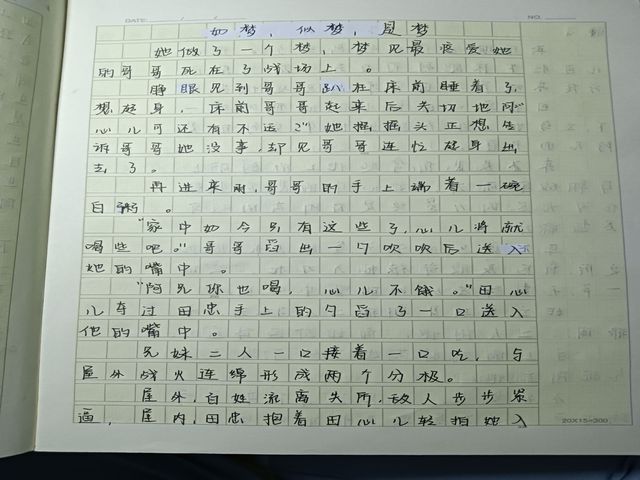 DATE: / / NO.
如梦，似梦，是梦
她做了一个梦，梦见最疼爱她
的哥哥死在了战场上。
睁眼见到哥哥趴在床前睡着了，
想起身，床前哥哥起来后关切地问"
心儿可还有不适？"她摇摇头正想告
诉哥哥她没事，却见哥哥连忙起身出
去了。
再进来时，哥哥的手上端着一碗
白粥。
"家中如今只有这些了，心儿将就
喝些吧。"哥哥舀出一勺吹吹后送入
她的嘴中。
"阿兄你也喝，心儿不饿。"田心
儿夺过田忠手上的勺舀了一口送入
他的嘴中。
兄妹二人一口接着一口吃，与
屋外战火连绵形成两个分极。
屋外，百姓流离失所，敌人步步紧
逼，屋内，田忠抱着田心儿轻拍她入
20X15=300